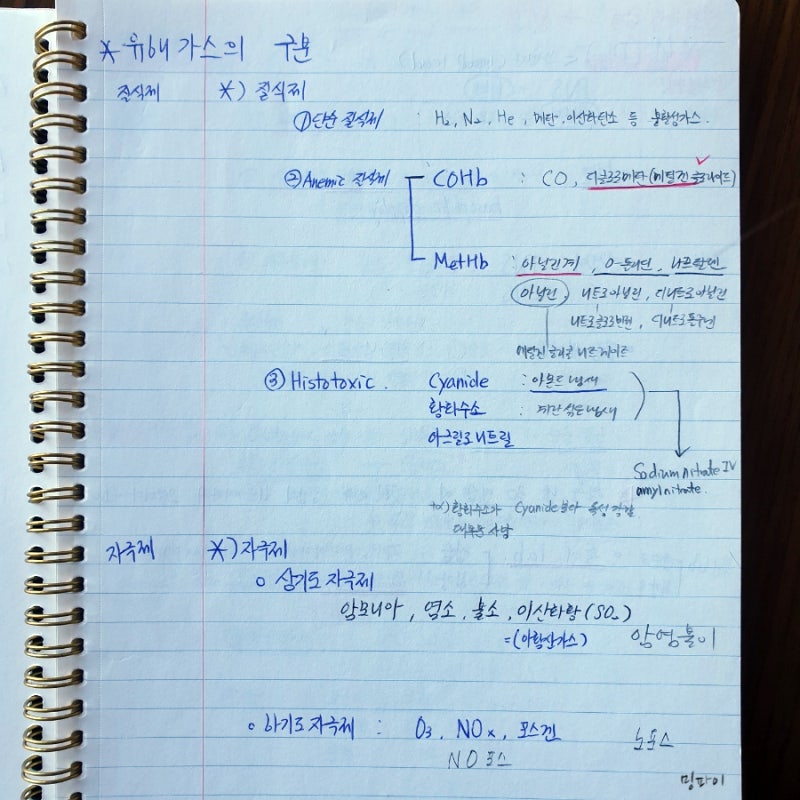 * 유해 가스의 구분
질식제 *) 질식제
① 단순 질식제 : H₂, N₂, He, 메탄, 이산화탄소 등 불활성가스.
② Anemic 질식제 COHb : CO, 디클로로메탄(메틸렌 클로라이드)
MetHb : 아닐린계, o-톨루딘, 나프탈렌
아닐린, 니트로아닐린, 디니트로아닐린
니트로클로로벤젠, 디니트로톨루엔
에틸렌글리콜
③ Histotoxic. Cyanide : 아몬드 냄새
황화수소 : 계란 썩은냄새
아크릴로니트릴
Sodium nitrate IV
amyl nitrate.
황화수소가 Cyanide 보다 독성 강함
대부분 사망
자극제 *) 자극제
○ 상기도 자극제
암모니아, 염소, 불소, 이산화황(SO₂)
=(아황산가스) 암염불이
○ 하기도 자극제 : O₃, NOx, 포스겐
NO포스 노포스
밍파이